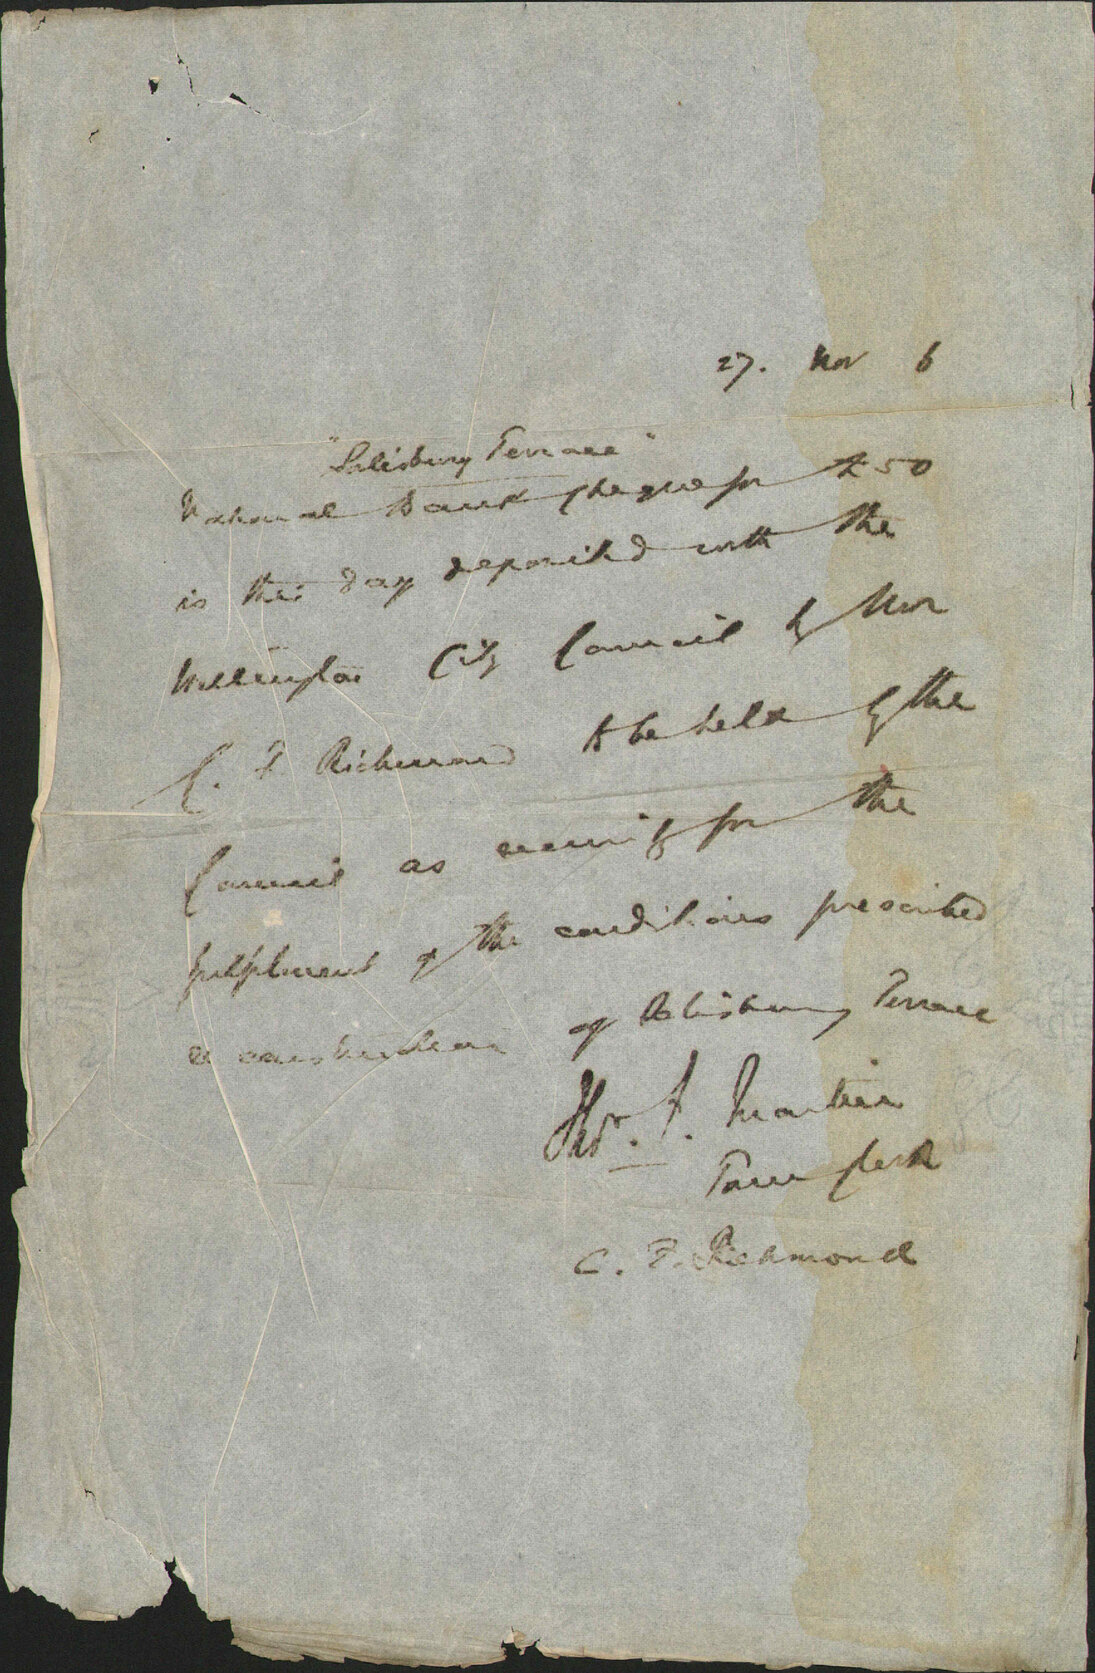 27. Nov 6
"Salisbury Terrace"
National Bank Cheque for £50
is this day deposited with the
Wellington City Council by Mr
C. F. Richmond to be held by the
Council as security for the
fulfilment of the conditions prescribed
construction of Salisbury Terrace
Thos. F. Martin
Town Clerk
C. F. Richmond